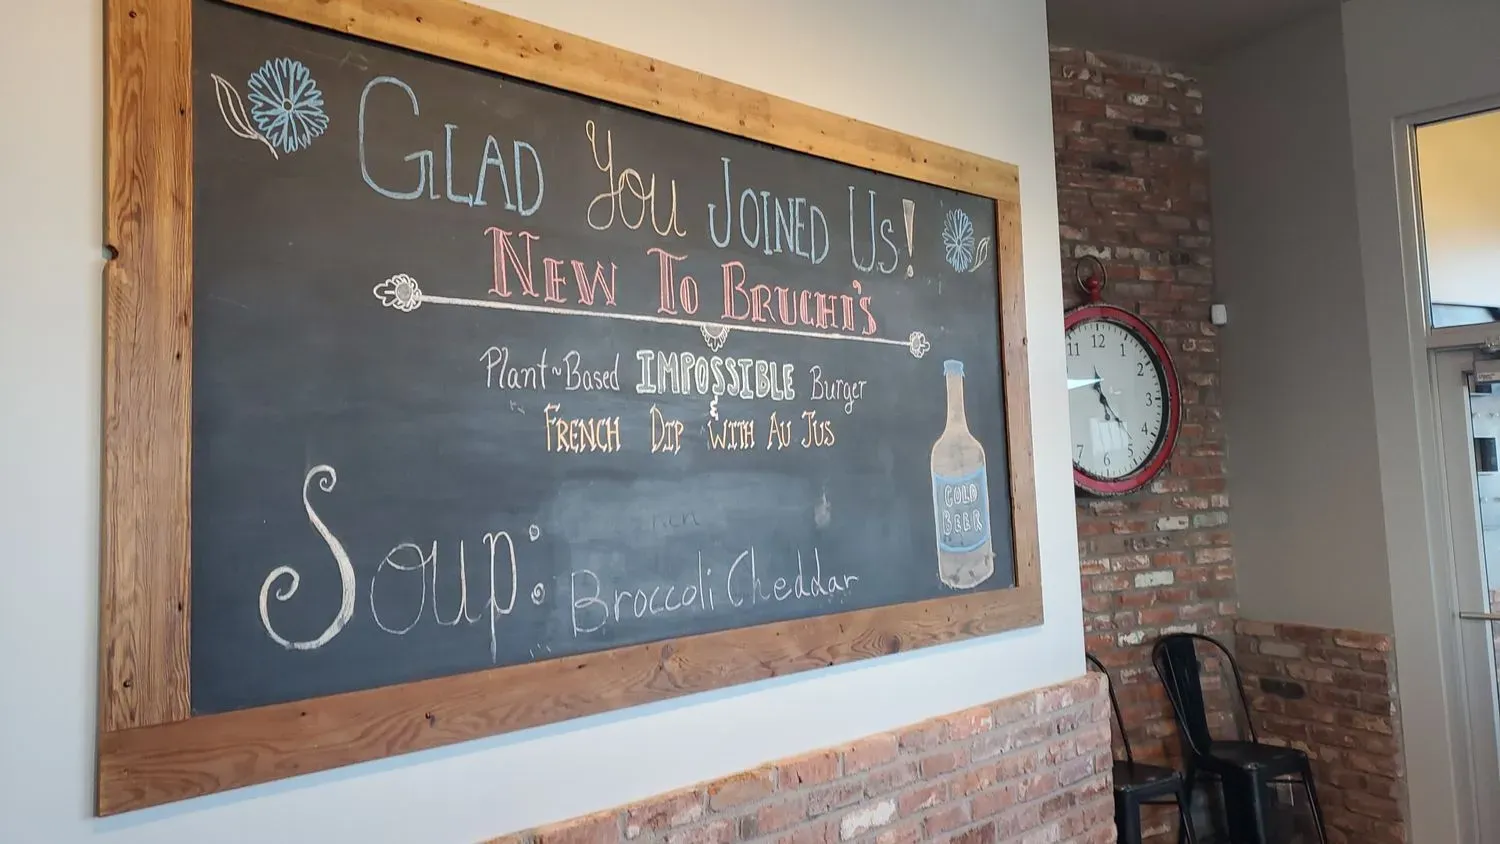 GLAD YOU JOINED US!
NEW TO BRUCHI'S
Plant~Based IMPOSSIBLE Burger
&
FRENCH DIP WITH AU JUS
SOUP: Broccoli Cheddar
COLD
BEER
11 12 1
2
3
4
5
6
7